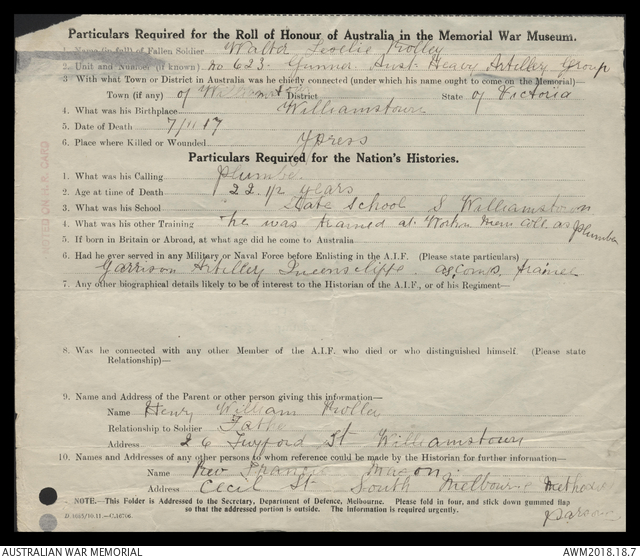 Particulars Required for the Roll of Honour of Australia in the Memorial War Museum.
1. Name (in full) of Fallen Soldier Walter Leslie Rolley
2. Unit and Number (if known) no 623. Gunner. Aust. Heavy Artillery Group
3 With what Town or District in Australia was he chiefly connected (under which his name ought to come on the Memorial)—
Town (if any) of Williamstown District State of Victoria
4. What was his Birthplace Williamstown
5. Date of Death 7/11/17
6. Place where Killed or Wounded Ypress
Particulars Required for the Nation's Histories.
1. What was his Calling Plumber
2. Age at time of Death 22 1/2 years
3. What was his School State School Williamstown
4. What was his other Training he was trained at Workin Mens Coll as plumber
5. If born in Britain or Abroad, at what age did he come to Australia
6. Had he ever served in any Military or Naval Force before Enlisting in the A.I.F. (Please state particulars)
Garrison Artillery Queenscliffe as comp. trainee
7. Any other biographical details likely to be of interest to the Historian of the A.I.F., or of his Regiment—
8. Was he connected with any other Member of the A.I.F. who died or who distinguished himself. (Please state
Relationship)—
9. Name and Address of the Parent or other person giving this information—
Name Henry William Rolley
Relationship to Soldier Father
Address 26 Twyford St Williamstown
10. Names and Addresses of any other persons to whom reference could be made by the Historian for further information—
Name Rev Francis Mason.
Address Cecil St South Melbourne Methodist
Parson
NOTE.—This Folder is Addressed to the Secretary, Department of Defence, Melbourne. Please fold in four, and stick down gummed flap
so that the addressed portion is outside. The information is required urgently.
AUSTRALIAN WAR MEMORIAL
AWM2018.18.7